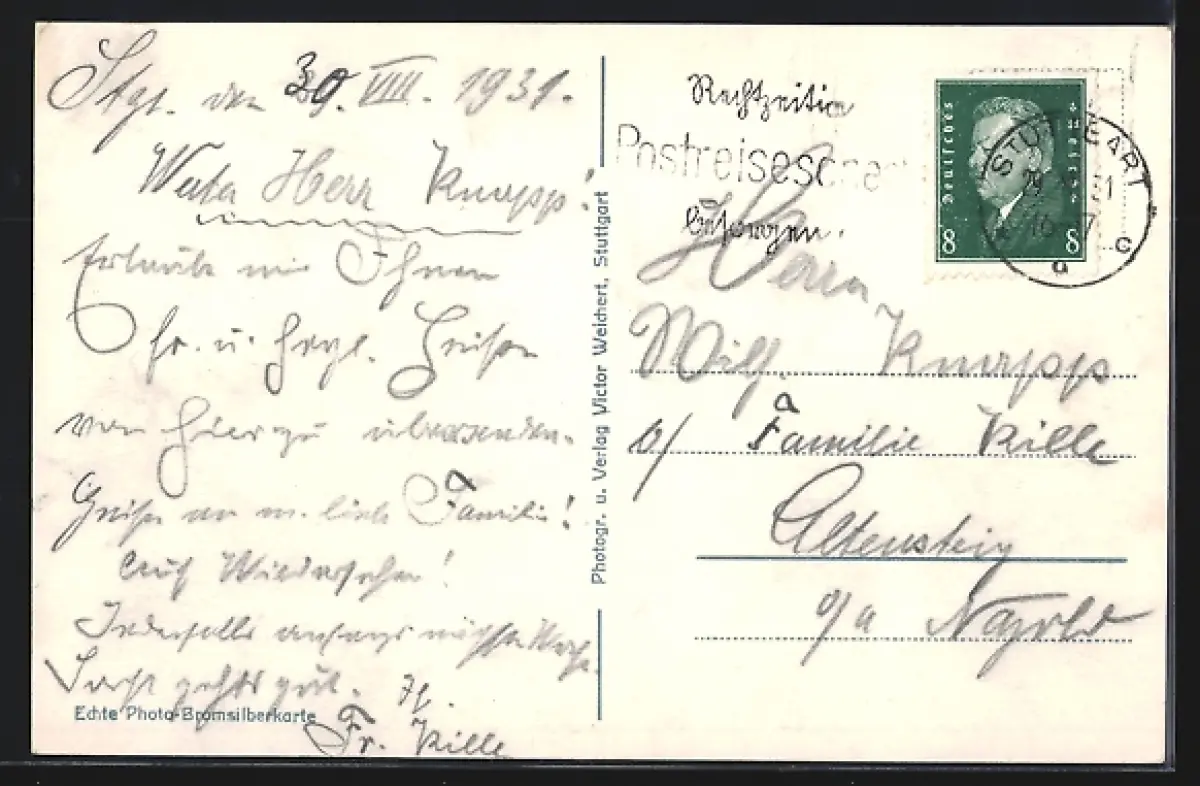 Stgt. den 30. VIII. 1931.
Werter Herr Knapp!
Erlaube mir Ihnen
fr. u. herzl. Grüße
von hier zu übersenden.
Grüße an m. liebe Familie!
Auf Wiedersehen!
Jedenfalls anfangs nächste Woche.
Sonst gehts gut. Ih.
Fr. Kille
Echte Photo-Bromsilberkarte
Photogr. u. Verlag Victor Weichert, Stuttgart
Rechtzeitig
Postreisescheck
besorgen.
Deutsches Reich
8 8
STUTTGART
Herrn
Wilh. Knapp
b/ Familie Kille
Altensteig
o/a Nagold